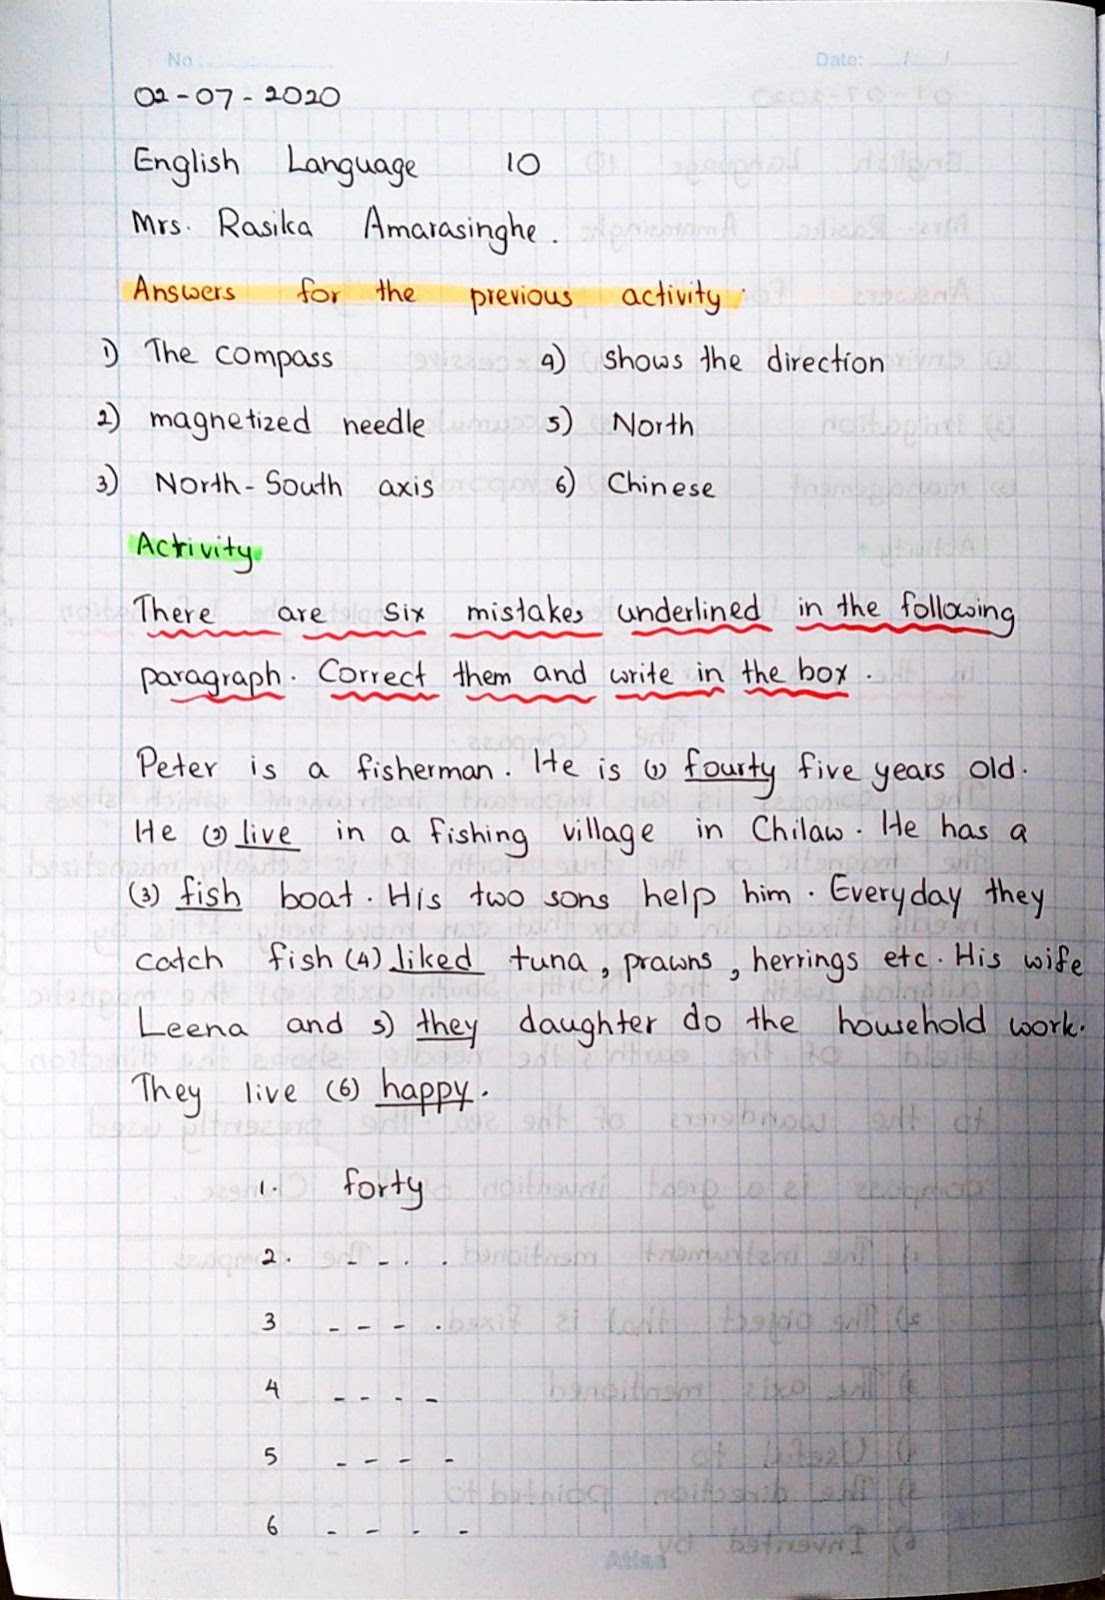 No
Date: / /
02-07-2020
English Language 10
Mrs. Rasika Amarasinghe.
Answers for the previous activity.
1) The compass 4) shows the direction
2) magnetized needle 5) North
3) North-South axis 6) Chinese
Activity.
There are six mistakes underlined in the following
paragraph. Correct them and write in the box.
Peter is a fisherman. He is (1) fourty five years old.
He (2) live in a fishing village in Chilaw. He has a
(3) fish boat. His two sons help him. Everyday they
catch fish (4) liked tuna, prawns, herrings etc. His wife
Leena and 5) they daughter do the household work.
They live (6) happy.
1. forty
2. - - . .
3 - - - .
4 - - - -
5 - - - -
6 - - - -
Atlas